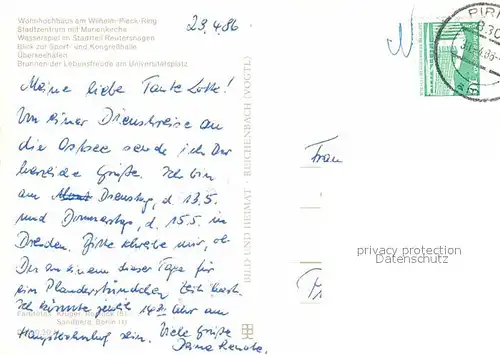 Wohnhochhaus am Wilhelm-Pieck-Ring
Stadtzentrum mit Marienkirche
Wasserspiel im Stadtteil Reutershagen
Blick zur Sport- und Kongreßhalle
Überseehafen
Brunnen der Lebensfreude am Universitätsplatz
23.4.86
Meine liebe Tante Lotte!
Von einer Dienstreise an
die Ostsee sende ich Dir
herzliche Grüße. Ich bin
am Dienstag, d. 13.5.
und Donnerstag, d. 15.5. in
Dresden. Bitte schreibe mir, ob
Du an einem dieser Tage für
ein Plauderstündchen Zeit hast.
Ich könnte jeweils Uhr am
Hauptbahnhof sein. Viele Grüße
Deine Renate.
Krüger, Rostock
Berlin (1)
BILD UND HEIMAT REICHENBACH (VOGTL)
Frau
PIR
830
privacy protection
AnsichtskartenCenter